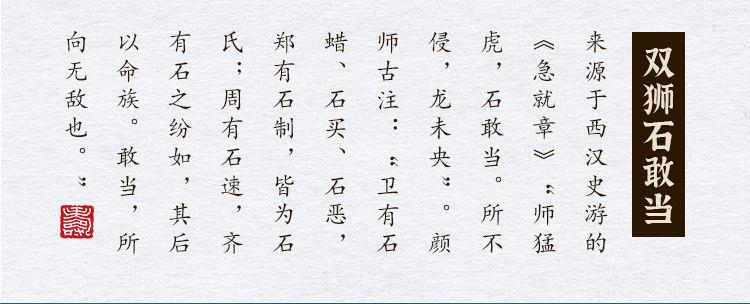 双狮石敢当
来源于西汉史游的
《急就章》“师猛
虎，石敢当。所不
侵，龙未央”。颜
师古注：“卫有石
蜡、石买、石恶，
郑有石制，皆为石
氏；周有石速，齐
有石之纷如，其后
以命族。敢当，所
向无敌也。”